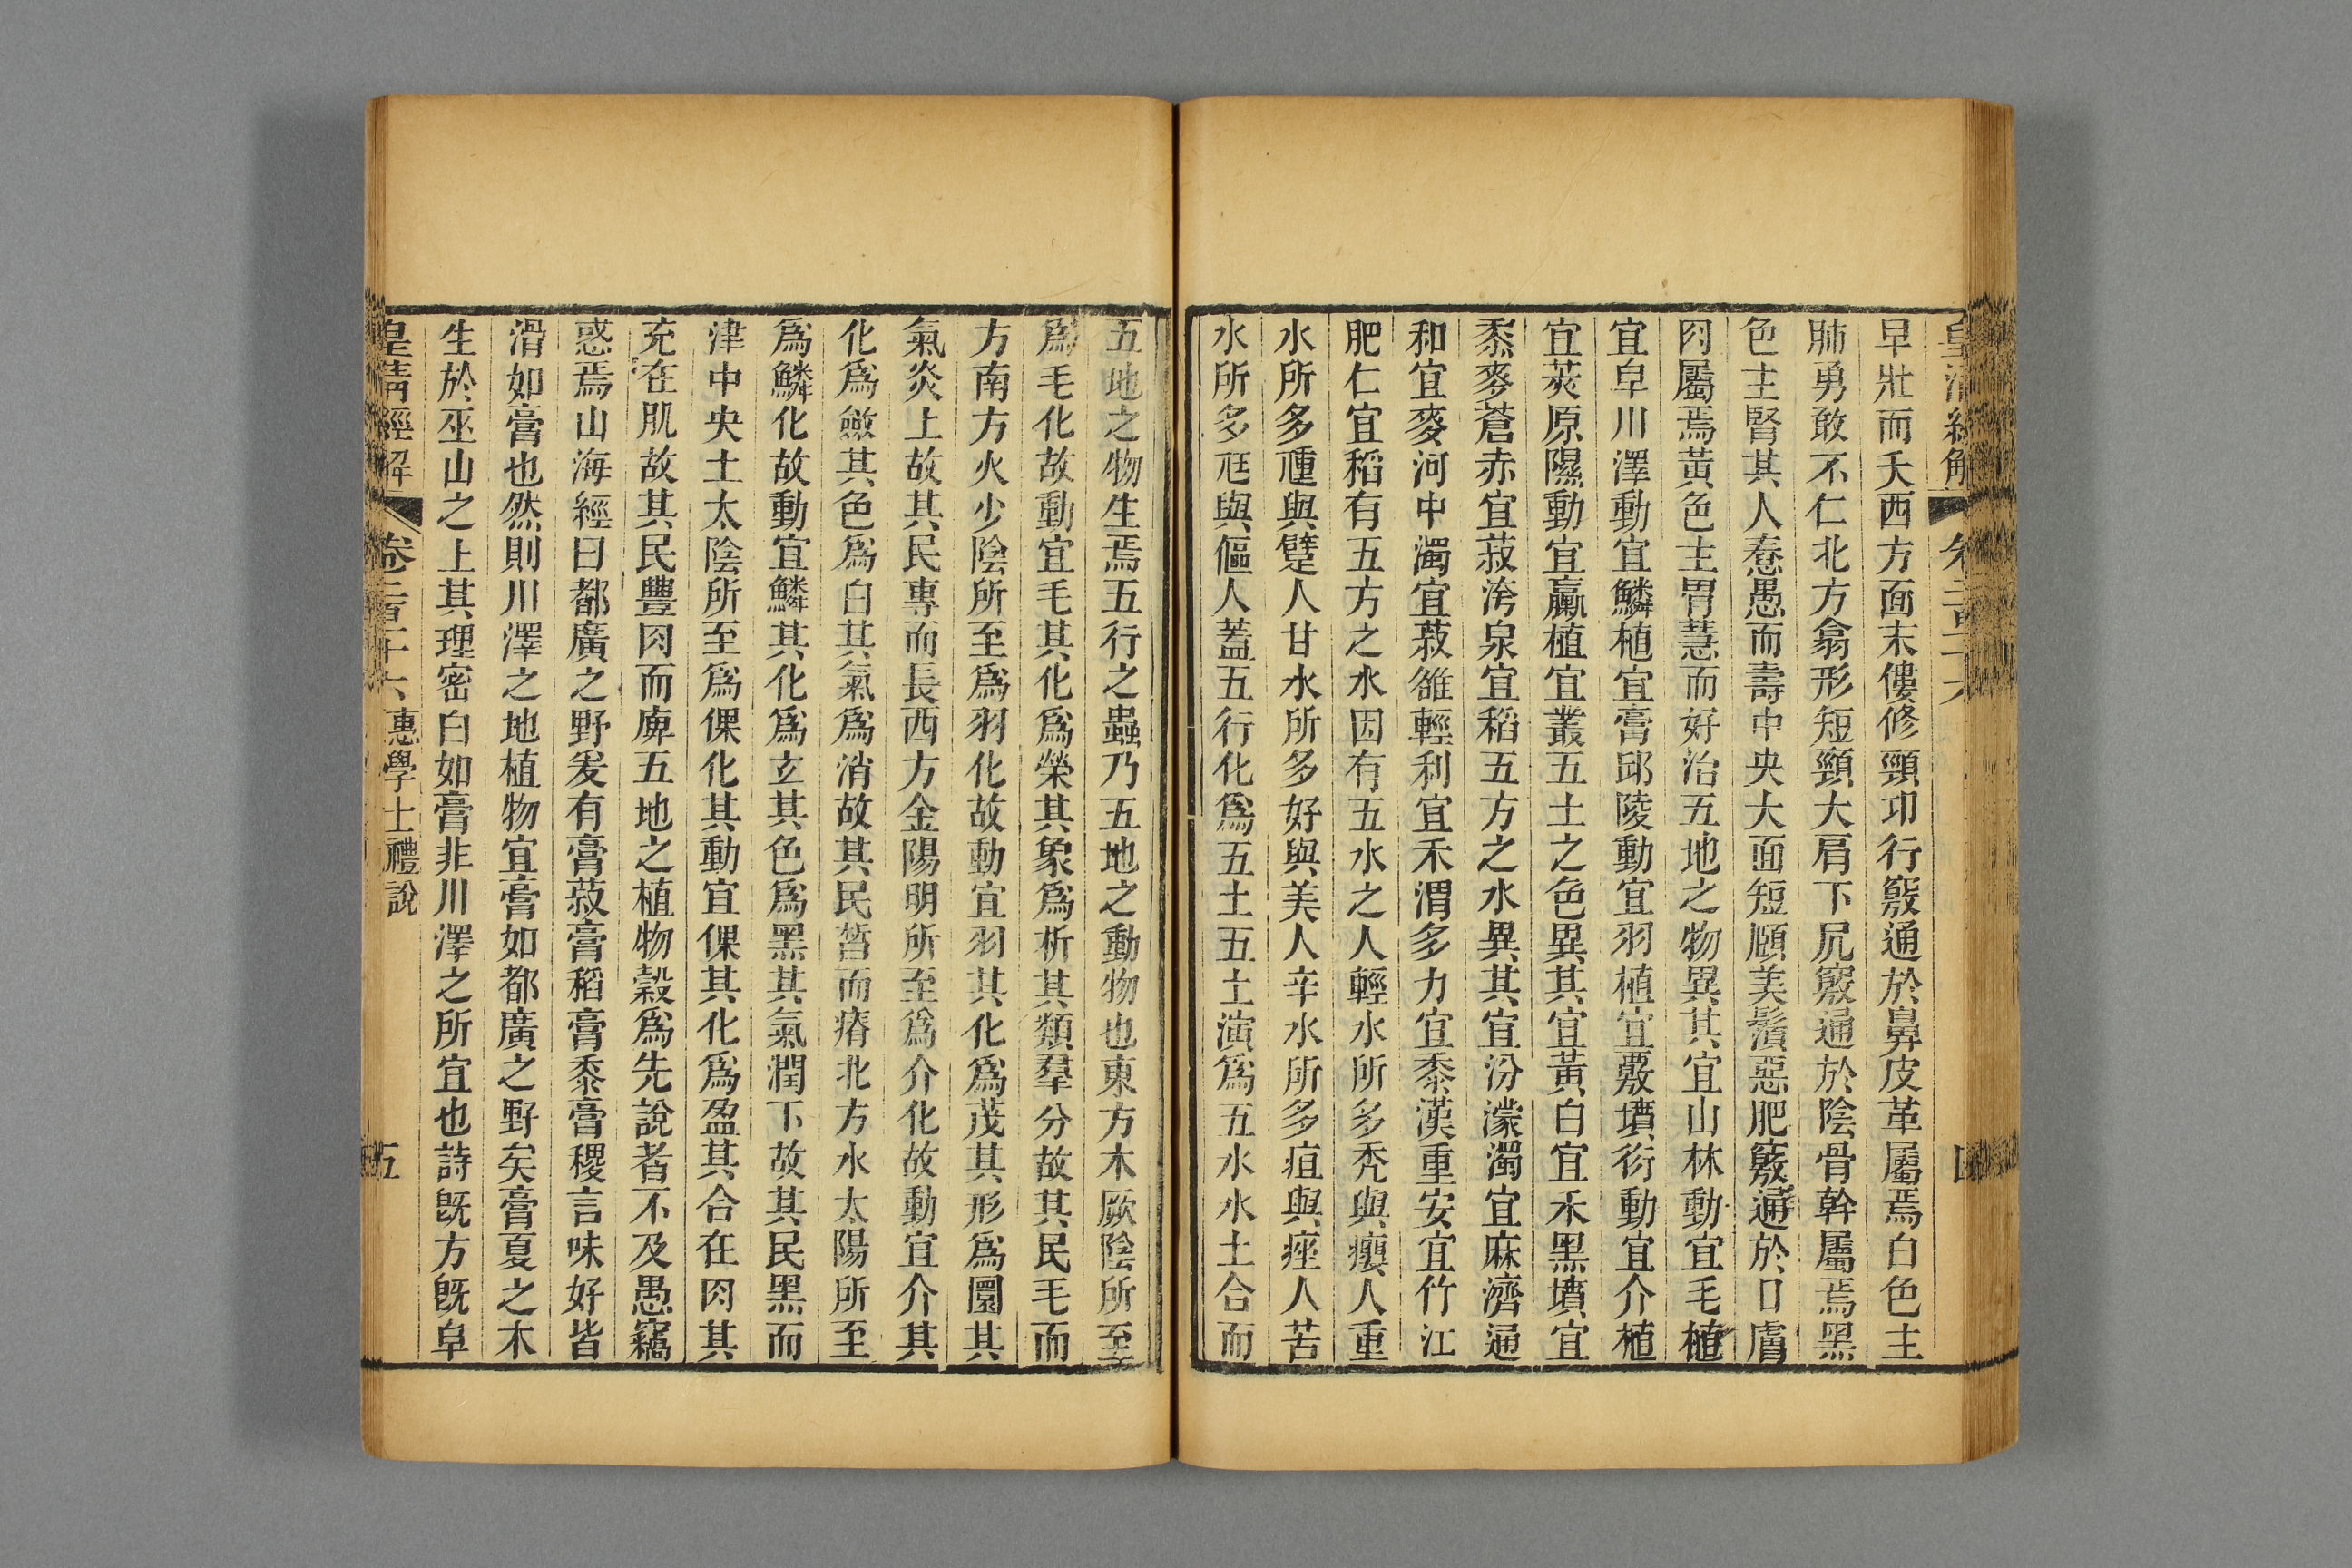 皇清經解 卷二百十六 四
早壯而夭西方面末僂修頸卬行竅通於鼻皮革屬焉白色主
肺勇敢不仁北方翕形短頸大肩下尻竅通於陰骨幹屬焉黑
色主腎其人惷愚而壽中央大面短頤美鬚惡肥竅通於口膚
肉屬焉黃色主胃慧而好治五地之物異其宜山林動宜毛植
宜皁川澤動宜鱗植宜膏邱陵動宜羽植宜覈墳衍動宜介植
宜莢原隰動宜臝植宜叢五土之色異其宜黃白宜禾黑墳宜
黍麥蒼赤宜菽洿泉宜稻五方之水異其宜汾濛濁宜麻濟通
和宜麥河中濁宜菽雒輕利宜禾渭多力宜黍漢重安宜竹江
肥仁宜稻有五方之水因有五水之人輕水所多禿與癭人重
水所多尰與躄人甘水所多好與美人辛水所多疽與痤人苦
水所多尪與傴人蓋五行化爲五土五土演爲五水水土合而
五地之物生焉五行之蟲乃五地之動物也東方木厥陰所至
爲毛化故動宜毛其化爲榮其象爲析其類羣分故其民毛而
方南方火少陰所至爲羽化故動宜羽其化爲茂其形爲圜其
氣炎上故其民專而長西方金陽明所至爲介化故動宜介其
化爲斂其色爲白其氣爲消故其民晳而瘠北方水太陽所至
爲鱗化故動宜鱗其化爲玄其色爲黑其氣潤下故其民黑而
津中央土太陰所至爲倮化其動宜倮其化爲盈其合在肉其
充在肌故其民豐肉而庳五地之植物穀爲先說者不及愚竊
惑焉山海經曰都廣之野爰有膏菽膏稻膏黍膏稷言味好皆
滑如膏也然則川澤之地植物宜膏如都廣之野矣膏夏之木
生於巫山之上其理密白如膏非川澤之所宜也詩旣方旣皁
皇清經解 卷二百十六 惠學士禮說 五